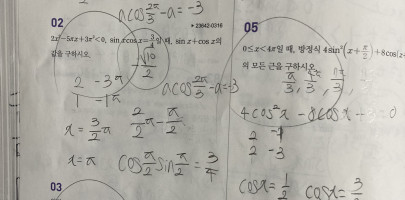 a cos 2π/3 - a = -3
02
▸ 23642-0318
2x²-5πx+3π²<0, sin x cos x=3/4일 때, sin x+cos x의
값을 구하시오.
√10/2
2 -3π
1 -1π
a cos 2π/3 - a = -3
x = 3/2 π
2/2 π - π/2
x = π
cos π/2 sin π/2 = 3/4
03
05
0≤x<4π일 때, 방정식 4sin²(x+π/2)+8cos(
의 모든 근을 구하시오.
π/3,
4cos²x - 8cosx + 3 = 0
2 -1
2 -3
cosx = 1/2 cosx = 3/